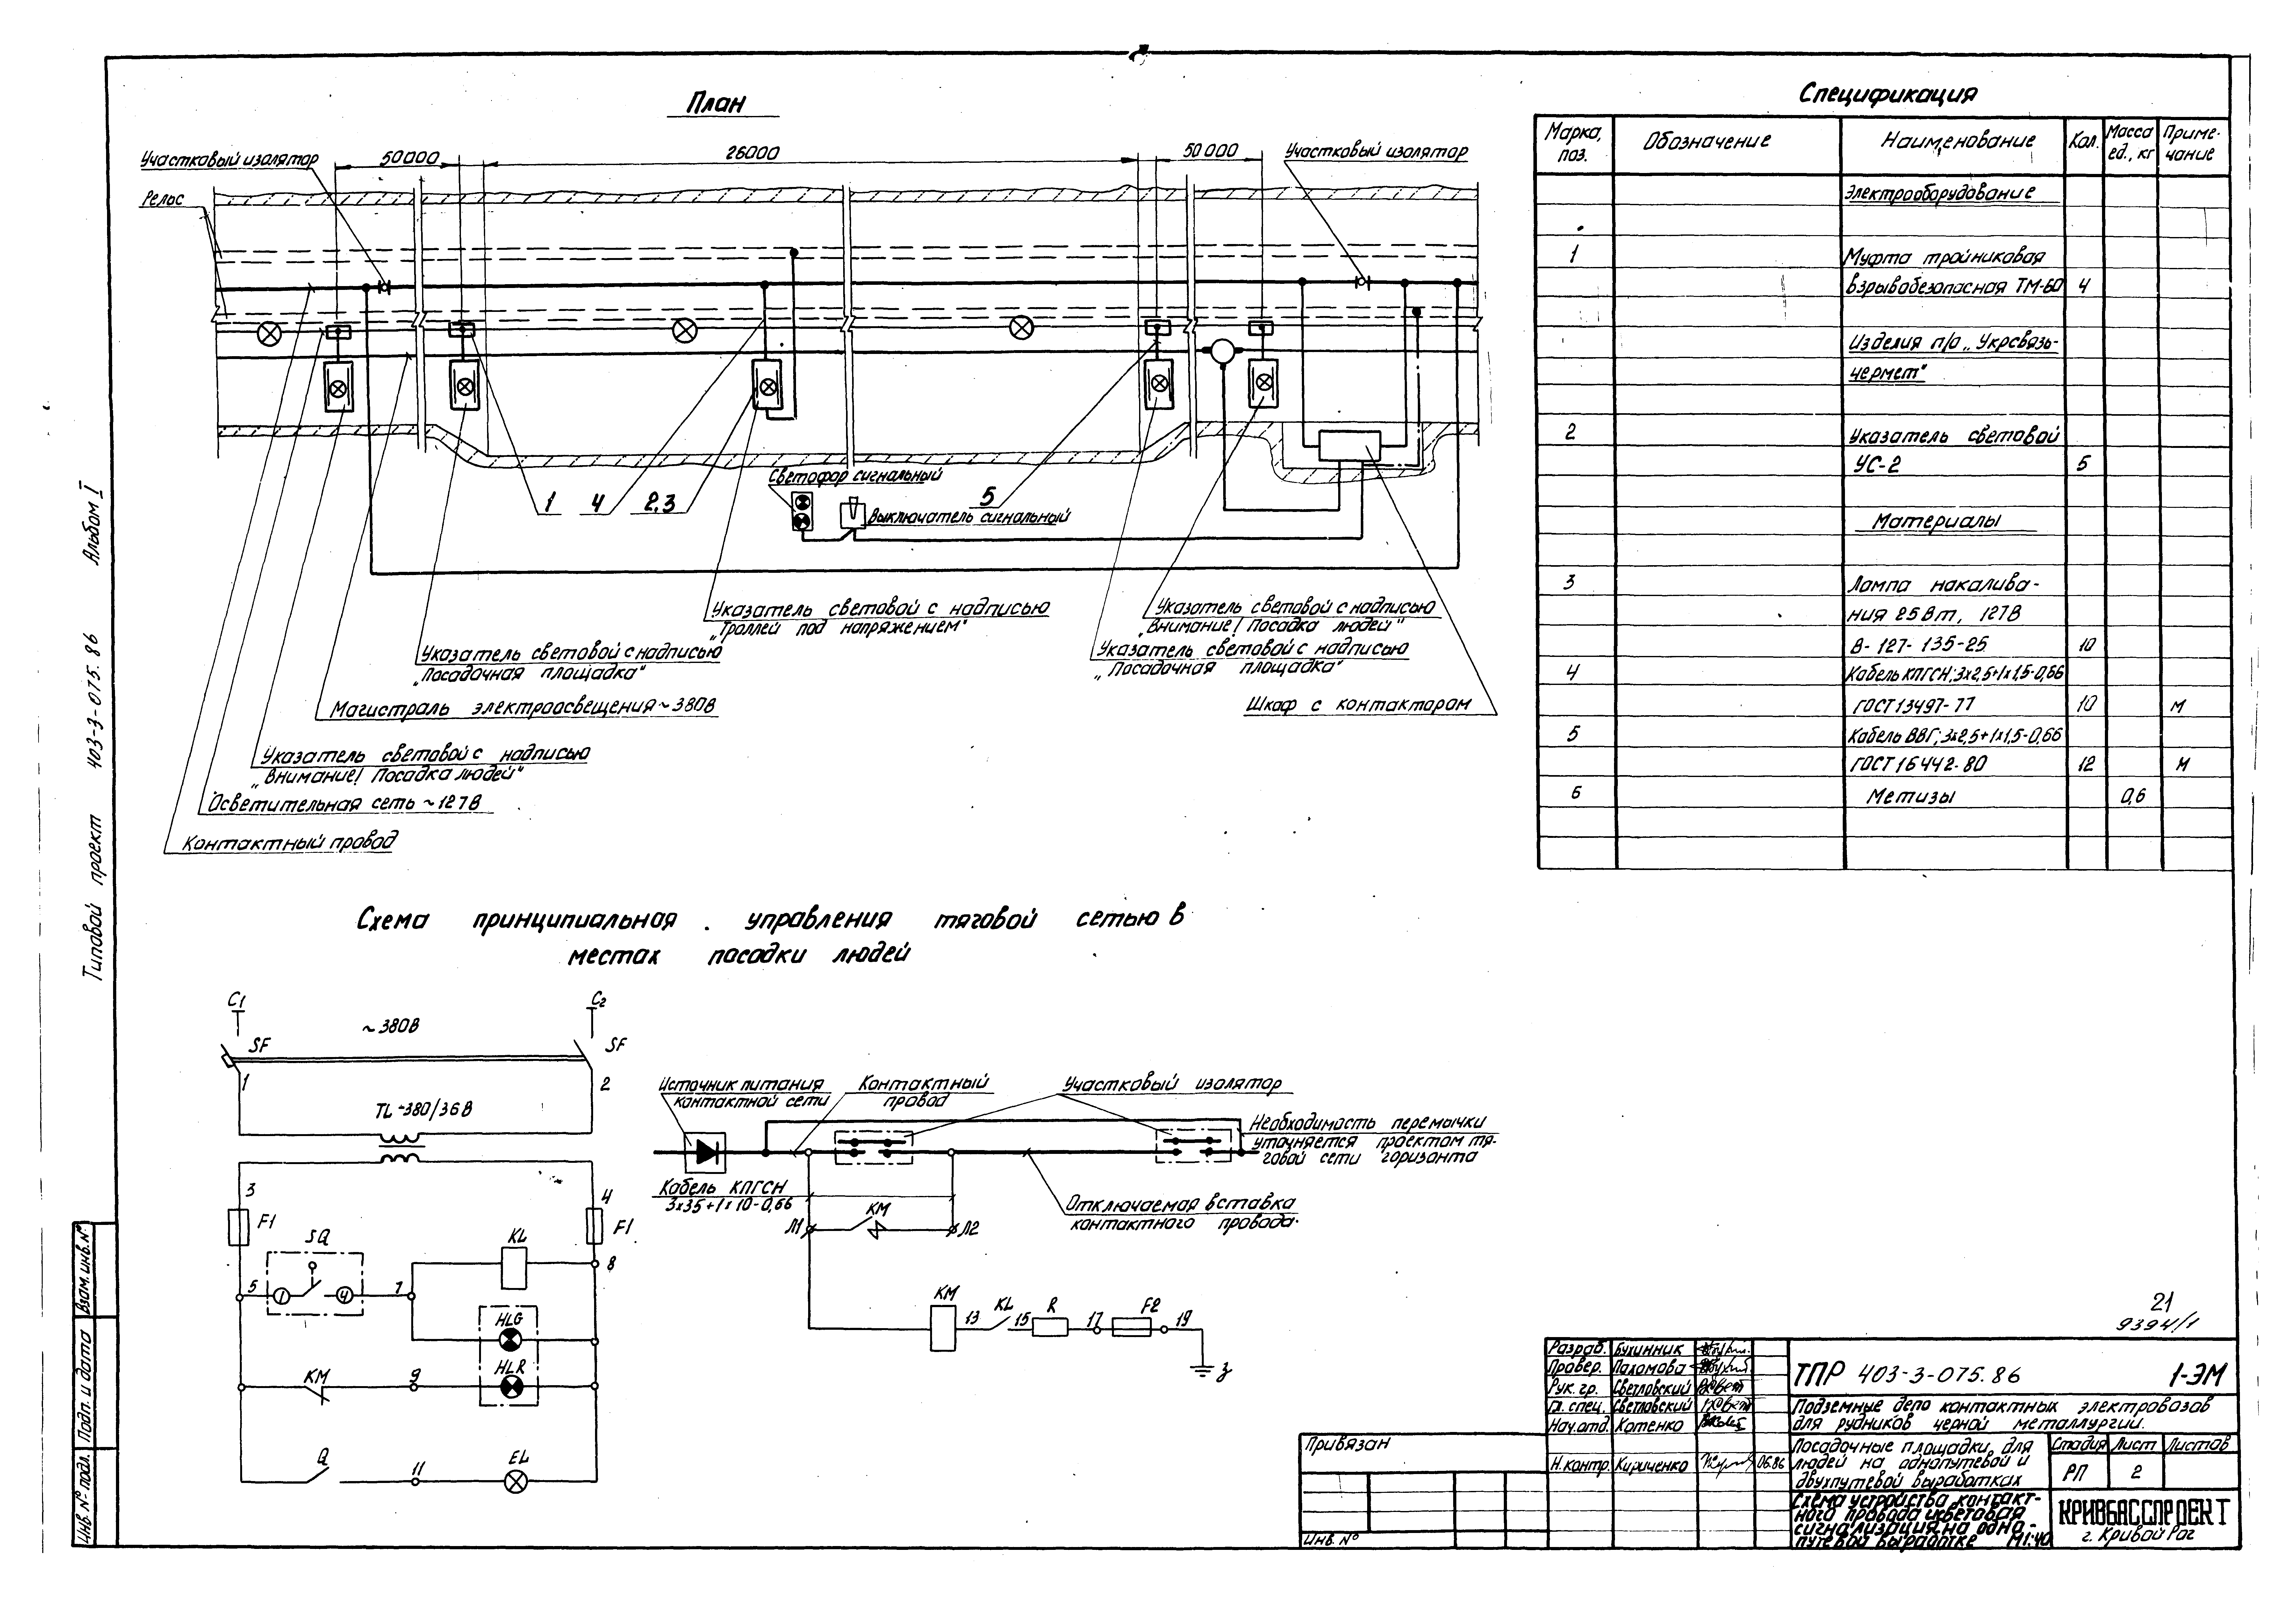 План
Участковый изолятор
50000
26000
50 000
Участковый изолятор
Рельс
Светофор сигнальный
1
4
2,3
5
Выключатель сигнальный
Указатель световой с надписью
„Троллей под напряжением"
Указатель световой с надписью
„Внимание! Посадка людей"
Указатель световой с надписью
„Посадочная площадка"
Указатель световой с надписью
„Посадочная площадка"
Магистраль электроосвещения ~ 380В
Шкаф с контактором
Указатель световой с надписью
„Внимание! Посадка людей"
Осветительная сеть ~ 127В
Контактный провод
Спецификация
Марка, поз. Обозначение Наименование Кол. Масса ед., кг Приме- чание
Электрооборудование
1 Муфта тройниковая
взрывобезопасная ТМ-60 4
Изделия п/о „Укрсвязь-
чермет"
2 Указатель световой
УС-2 5
Материалы
3 Лампа накалива-
ния 25 Вт, 127В
В-127-135-25 10
4 Кабель КПГСН; 3х2,5+1х1,5-0,66
ГОСТ 13497-77 10 м
5 Кабель ВВГ; 3х2,5+1х1,5-0,66
ГОСТ 16442-80 12 м
6 Метизы 0,6
Схема принципиальная управления тяговой сетью в
местах посадки людей
C1
C2
~ 380В
SF
SF
1
2
TL -380/36В
3
4
F1
F1
SQ
KL
8
5
1
4
7
HLG
HLR
KM
9
Q
11
EL
Источник питания
контактной сети
Контактный
провод
Участковый изолятор
Необходимость перемычки
уточняется проектом тя-
говой сети горизонта
Кабель КПГСН
3х35+1х10-0,66
Отключаемая вставка
контактного провода.
Л1
KM
Л2
KM
13
KL
15
R
17
F2
19
З
Типовой проект 403-3-075.86 Альбом I
Взам. инв. №
Подп. и дата
Инв. № подл.
21
9394/1
Разраб. Бухинник
Провер. Пахомова
Рук. гр. Светловский
Гл. спец. Светловский
Нач. отд. Котенко
Н. контр. Кириченко 06.86
ТПР 403-3-075.86 1-ЭМ
Подземные депо контактных электровозов
для рудников черной металлургии.
Посадочные площадки для
людей на однопутевой и
двухпутевой выработках
Стадия Лист Листов
РП 2
Схема устройства контакт-
ного провода и световая
сигнализация на одно-
путевой выработке М1:40
КРИВБАССПРОЕКТ
г. Кривой Рог
Привязан
Инв. №